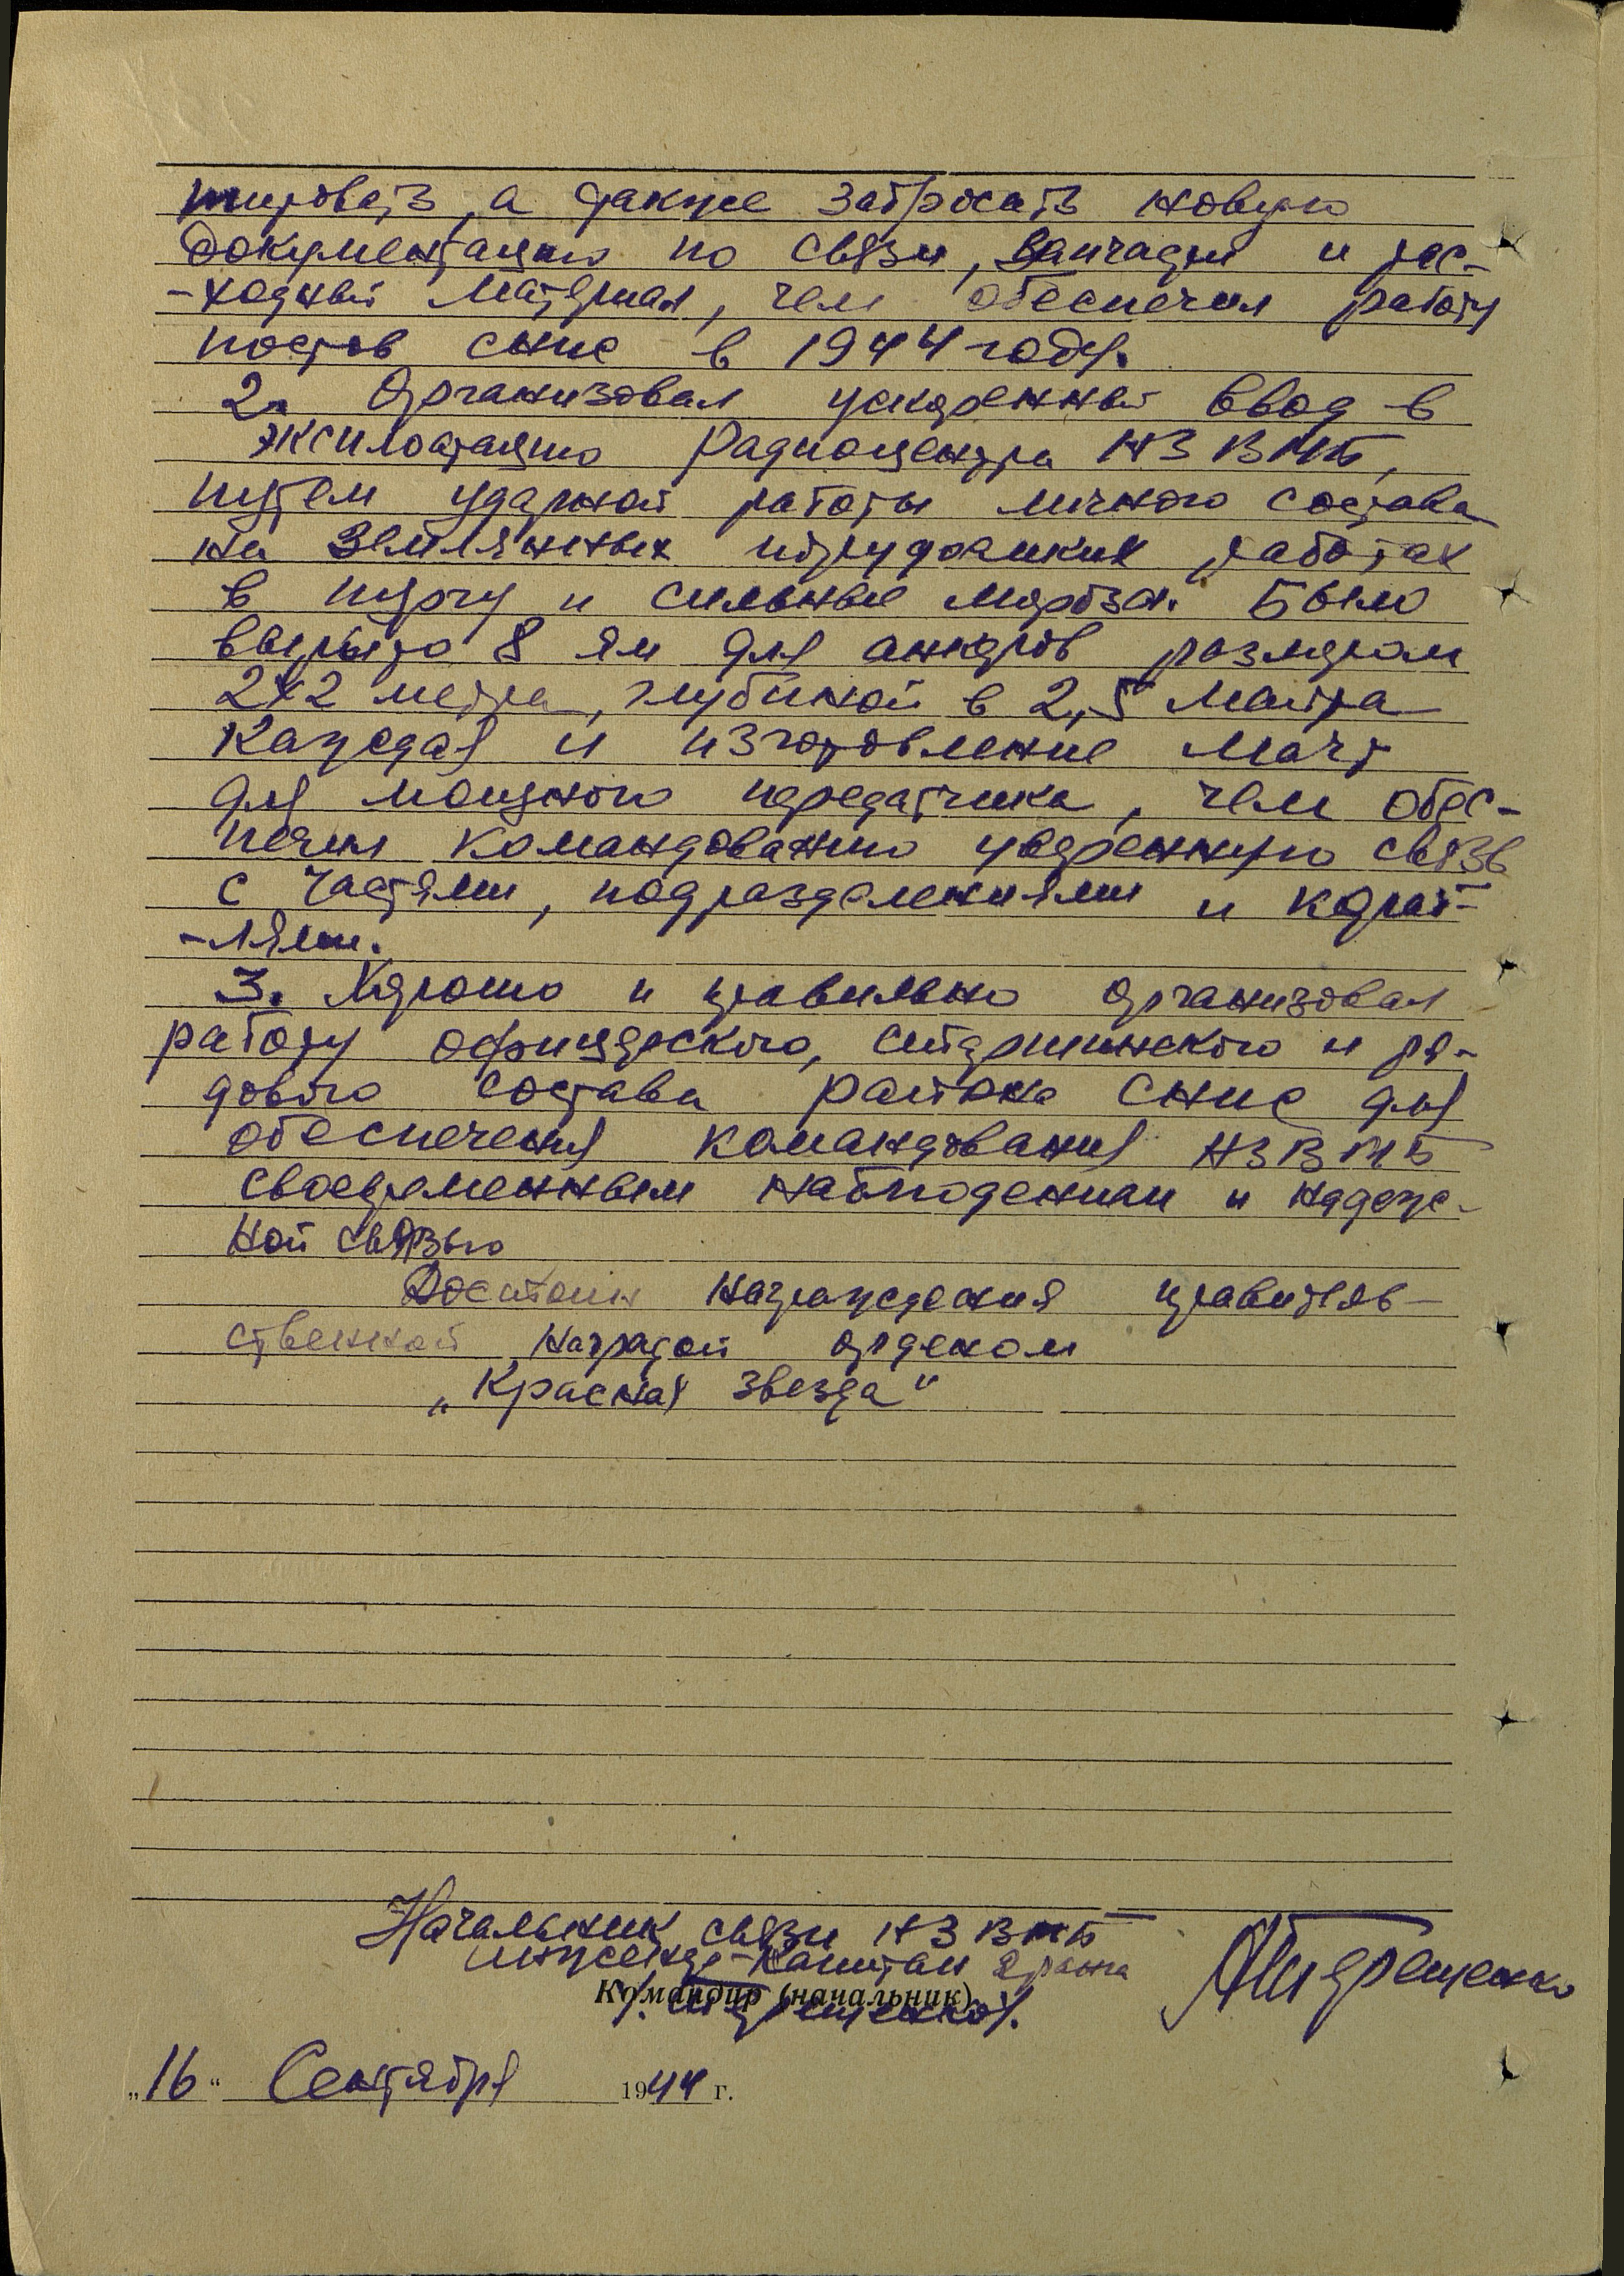 тировать, а также забросать новую
документацию по связи, запчасти и рас-
-ходный материал, чем обеспечил работу
постов СНиС в 1944 году.
2. Организовал ускоренный ввод в
эксплоатацию Радиоцентра НЗ ВМБ,
путем ударной работы личного состава
на земляных и трудоемких работах
в пургу и сильные морозы. Было
вырыто 8 ям для анкеров размером
2х2 метра, глубиной в 2,5 метра
каждая и изготовление мачт
для мощного передатчика, чем обес-
печил командованию уверенную связь
с частями, подразделениями и кораб-
-лями.
3. Хорошо и правильно организовал
работу офицерского, старшинского и ря-
дового состава района СНиС для
обеспечения командования НЗВМБ
своевременным наблюдением и надеж-
ной связью
Достоин награждения правитель-
ственной наградой орденом
„Красная Звезда"
Начальник связи НЗ ВМБ
инженер-капитан 2 ранга
Командир (начальник)
„16" Сентября 1944 г.